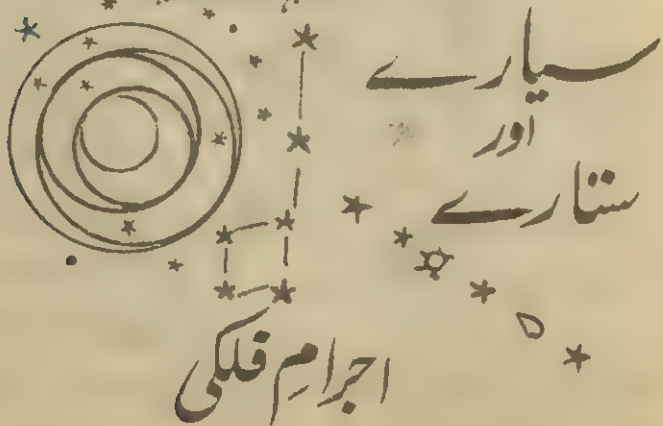 سیارے
اور
ستارے
اجرامِ فلکی